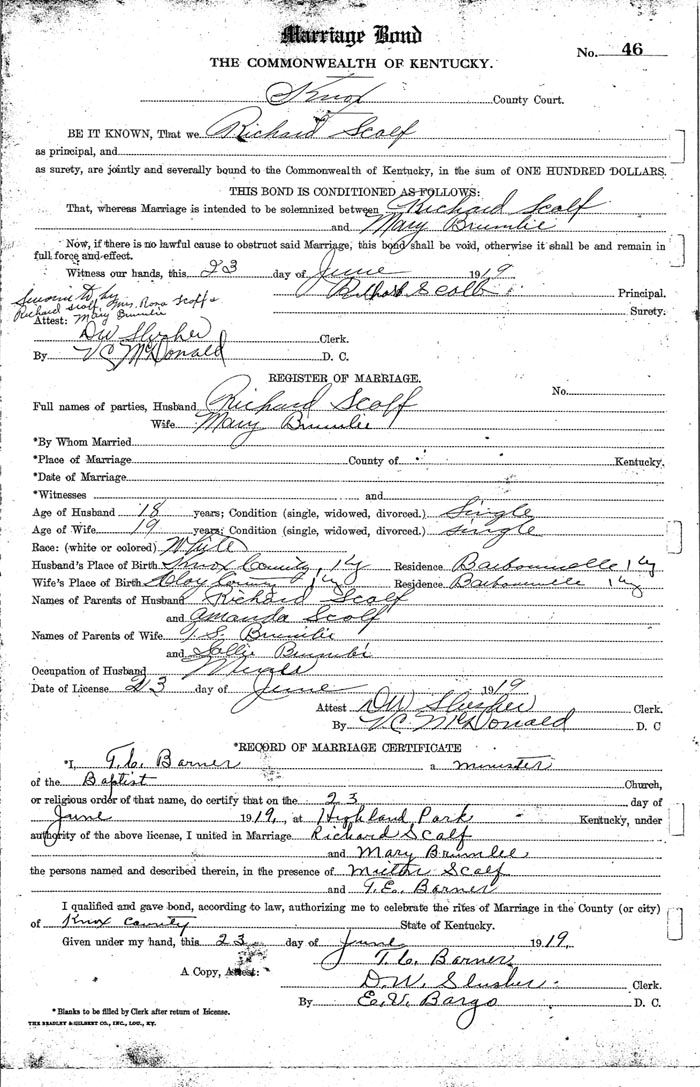 Marriage Bond
No. 46
THE COMMONWEALTH OF KENTUCKY.
Knox County Court.
BE IT KNOWN, That we Richard Scalf
as principal, and
as surety, are jointly and severally bound to the Commonwealth of Kentucky, in the sum of ONE HUNDRED DOLLARS.
THIS BOND IS CONDITIONED AS FOLLOWS:
That, whereas Marriage is intended to be solemnized between Richard Scalf
and Mary Brumlie
Now, if there is no lawful cause to obstruct said Marriage, this bond shall be void, otherwise it shall be and remain in
full force and effect.
Witness our hands, this 23 day of June 1919
Richard Scalf Principal.
Sworn to by Surety.
Richard Scalf, Mrs. Rosa
Attest: Mary Brumlie
DW Slusher Clerk.
By VC McDonald D. C.
REGISTER OF MARRIAGE.
No.
Full names of parties, Husband Richard Scalf
Wife Mary Brumlie
*By Whom Married
*Place of Marriage County of Kentucky.
*Date of Marriage
*Witnesses and
Age of Husband 18 years; Condition (single, widowed, divorced.) Single
Age of Wife 19 years; Condition (single, widowed, divorced.) single
Race: (white or colored) White
Husband's Place of Birth Knox County, Ky Residence Barbourville Ky
Wife's Place of Birth Clay County Ky Residence Barbourville Ky
Names of Parents of Husband Richard Scalf
and Amanda Scalf
Names of Parents of Wife Brumlie
and Sallie Brumlie
Occupation of Husband
Date of License 23 day of June 1919
Attest DW Slusher Clerk.
By VC McDonald D. C
*RECORD OF MARRIAGE CERTIFICATE
*I, T.C. Barner a minister
of the Baptist Church,
or religious order of that name, do certify that on the 23 day of
June 1919, at Highland Park Kentucky, under
authority of the above license, I united in Marriage Richard Scalf
and Mary Brumlee
the persons named and described therein, in the presence of Scalf
and T.E. Barner
I qualified and gave bond, according to law, authorizing me to celebrate the rites of Marriage in the County (or city)
of Knox County State of Kentucky.
Given under my hand, this 23 day of June 1919.
T.C. Barner
A Copy, Attest: D.W. Slusher Clerk.
By E.V. Bargo D. C.
*Blanks to be filled by Clerk after return of License.
THE BRADLEY & GILBERT CO., INC., LOU., KY.